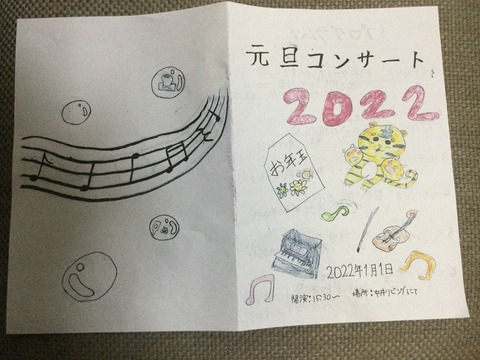 元旦コンサート
2022
お年玉
2022年1月1日
開演:15:30〜 場所:中井リビングにて